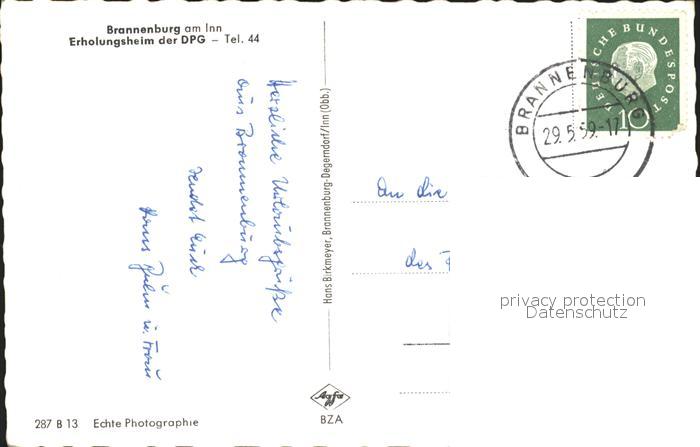 Brannenburg am Inn
Erholungsheim der DPG – Tel. 44
Herzliche Urlaubsgrüße
aus Brannenburg
sendet Euch
Hans u. Frau
Hans Birkmeyer, Brannenburg-Degerndorf/Inn (Obb.)
DEUTSCHE BUNDESPOST
10
BRANNENBURG
29.5.59-17
An die
des
privacy protection
Datenschutz
Agfa
BZA
287 B 13 Echte Photographie